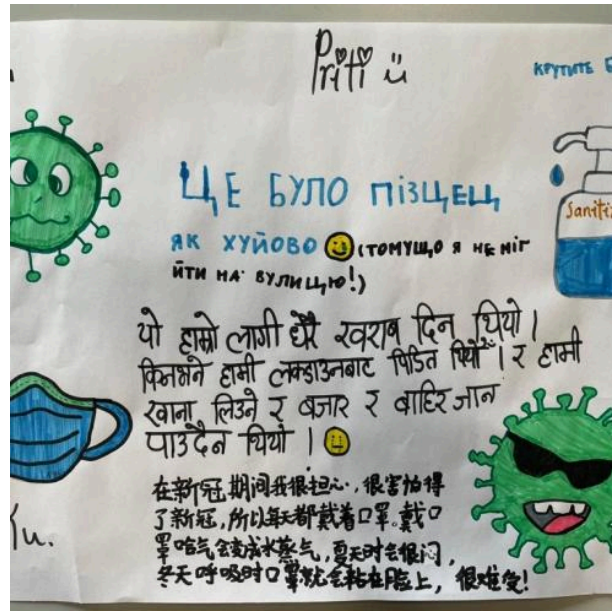 Priti ü
КРУТИТЕ Б
Sanitiz
ЦЕ БУЛО ПІЗЦЕЦ
ЯК ХУЙОВО (ТОМУЩО Я НЕ МІГ
ЙТИ НА ВУЛИЦЮ!)
यो हाम्रो लागी धेरै खराब दिन थियो ।
किनभने हामी लकडाउनबाट पिडित थियौँ । र हामी
खाना लिउने र बजार र बाहिर जान
पाउदैन थियो ।
在新冠期间我很担心，很害怕得
了新冠，所以每天都戴着口罩。戴口
罩哈气会变成水蒸气，夏天时会很闷，
冬天呼吸时口罩就会粘在脸上，很难受！